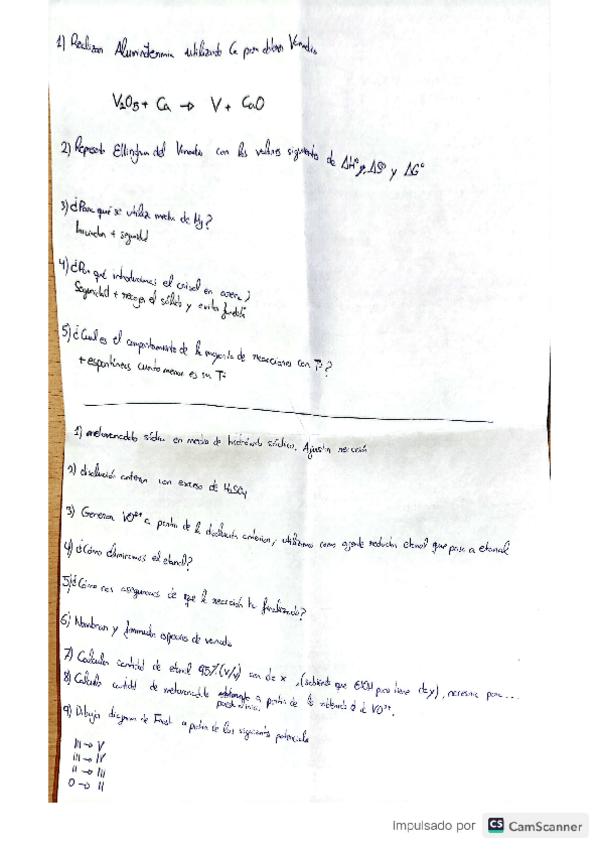 1) Realizar Aluminotermia utilizando Ca para obtener Vanadio
V2O5 + Ca → V + CaO
2) Representa Ellingham del Vanadio con los valores siguientes de ΔHº, ΔSº y ΔGº
3) ¿Para qué se utiliza mecha de Mg?
Iniciador + seguridad
4) ¿Por qué introducimos el crisol en arena?
Seguridad + recoge el sólido y evita
5) ¿Cuál es el comportamiento de la mayoría de reacciones con Tª?
+ espontáneas cuanto menor es su Tª
1) metavanadato sódico en medio de hidróxido sódico. Ajustar reacción
2) disolución anterior con exceso de H2SO4
3) Generar VO2+ a partir de la disolución anterior, utilizamos como agente reductor etanol que pasa a etanal
4) ¿Cómo eliminamos el etanol?
5) ¿Cómo nos aseguramos de que la reacción ha finalizado?
6) Nombrar y formular especies de vanadio
7) Calcular cantidad de etanol 95% (v/v) con d= x, (sabiendo que EtOH puro tiene d=y), necesaria para...
8) Calcula cantidad de metavanadato a partir de de VO2+.
9) Dibuja diagrama de Frost a partir de los siguientes potenciales
IV → V
III → IV
II → III
0 → II
Impulsado por CS CamScanner